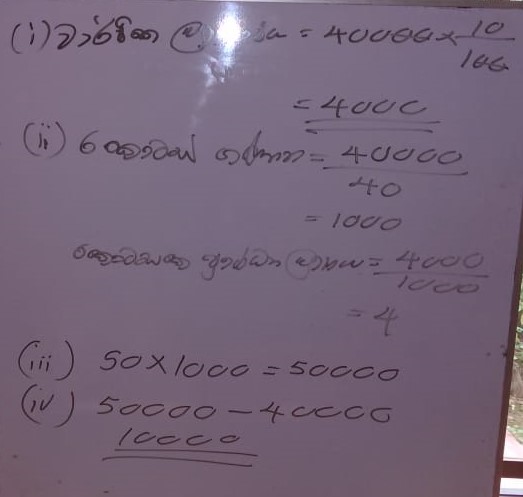 (i) වාර්ෂික = 40000 × 10/100
= 4000
(ii) කොටස් ගණන = 40000/40
= 1000
කොටසක = 4000/1000
= 4
(iii) 50 × 1000 = 50000
(iv) 50000 – 40000
10000